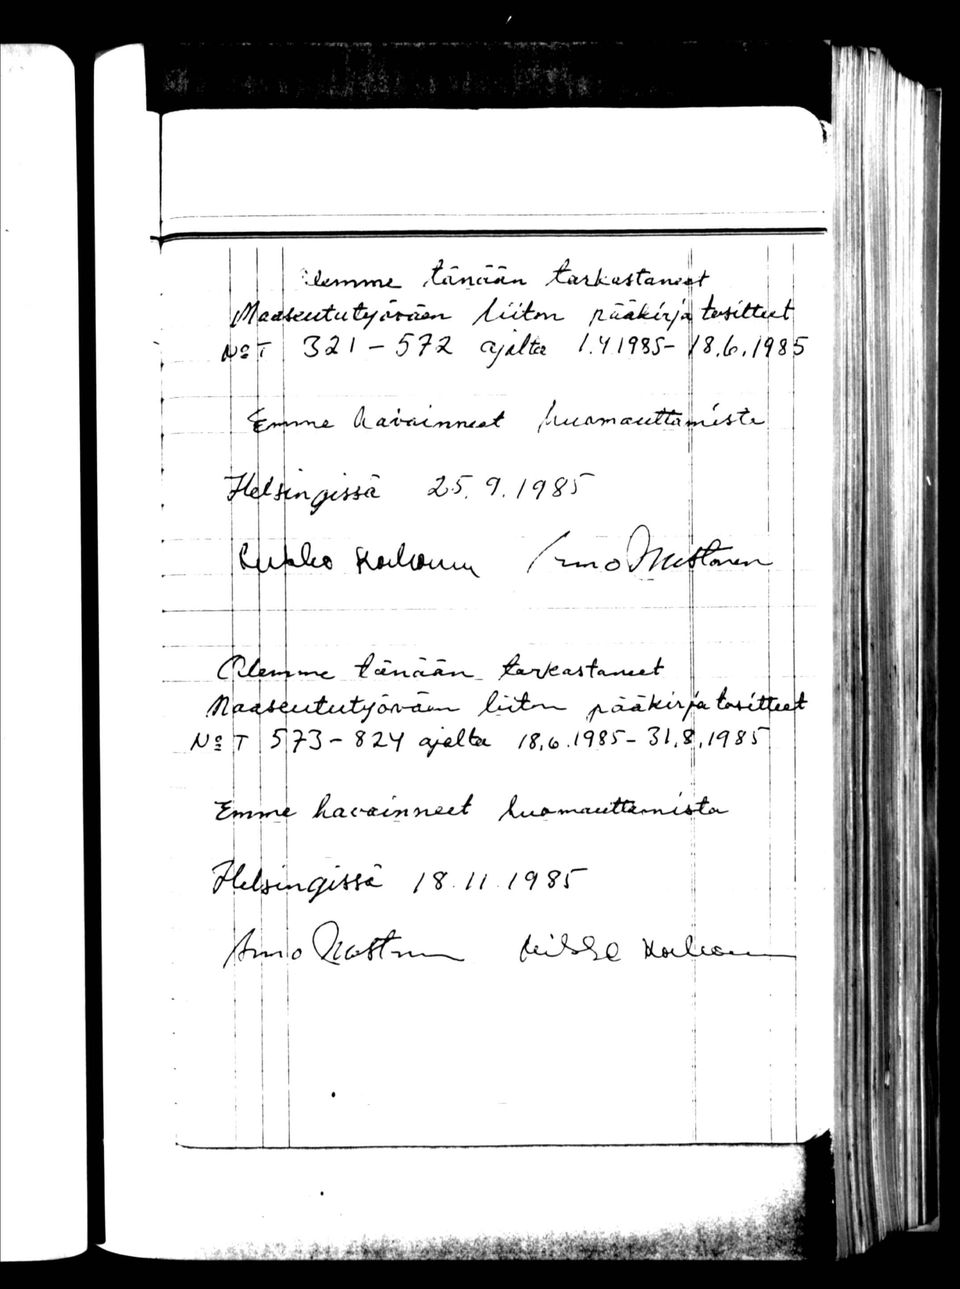 Olemme tänään tarkastaneet
Maaseututyöväen liiton pääkirja tositteet
No T 321 - 572 ajalta 1.4.1985 - 18.6.1985
Emme havainneet huomauttamista
Helsingissä 25.9.1985
Arno
Olemme tänään tarkastaneet
Maaseututyöväen liiton pääkirja tositteet
No T 573 - 824 ajalta 18.6.1985 - 31.8.1985
Emme havainneet huomauttamista
Helsingissä 18.11.1985
Arno